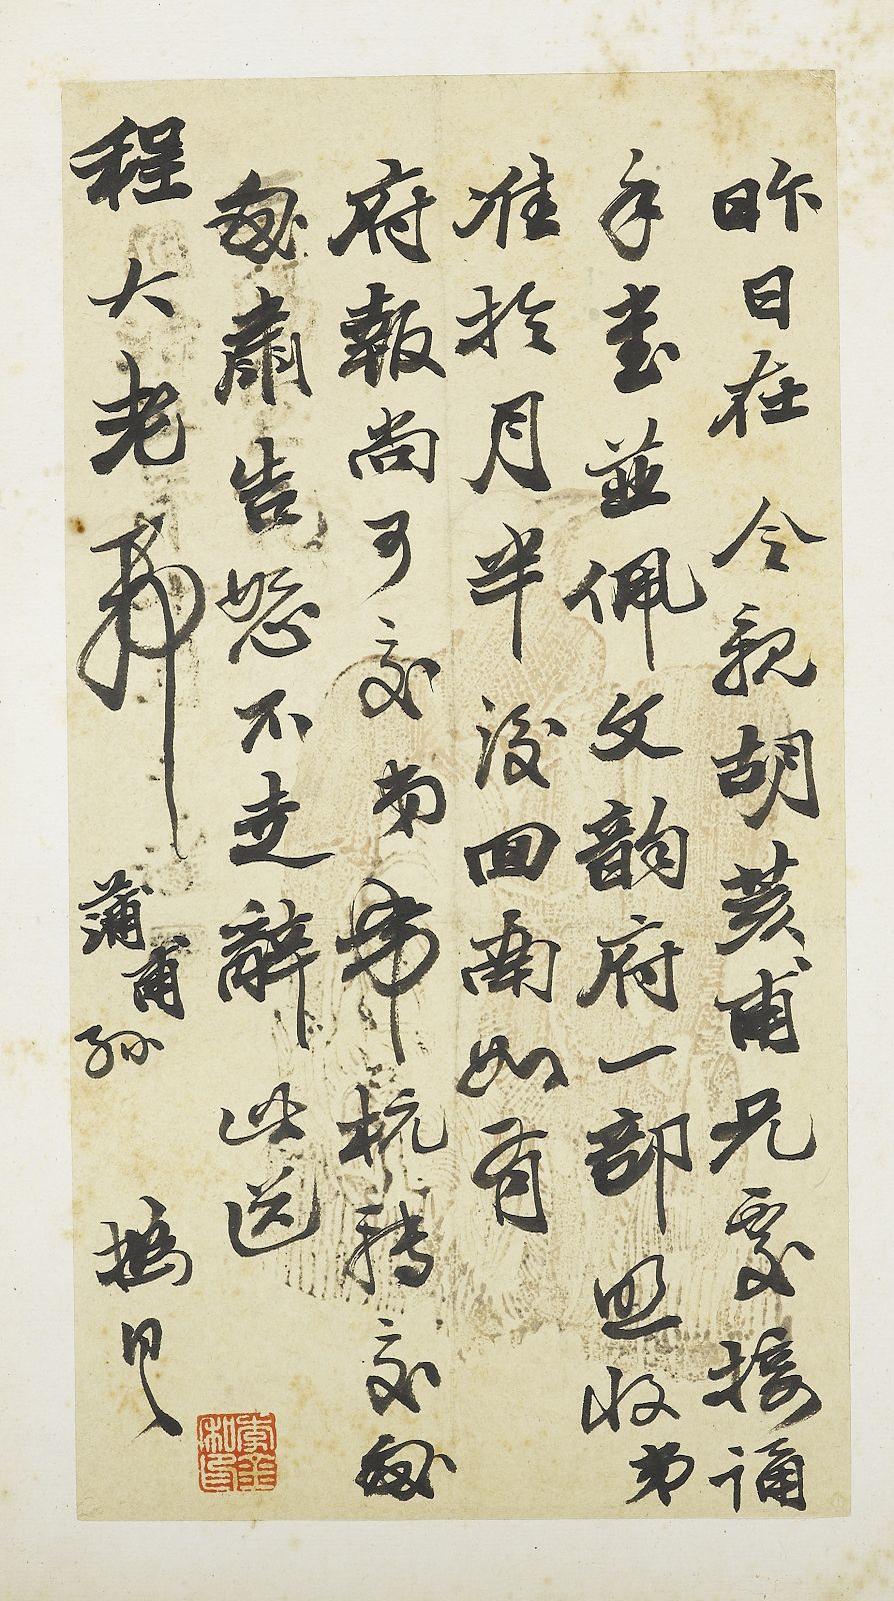 昨日在 令親胡荄甫兄處接誦
手書並佩文韻府一部照收弟
准於月半後回南如有
府報尚可交弟帶杭轉交匆
匆肅告恕不走辭此送
程大老爺
蒲孫
甫